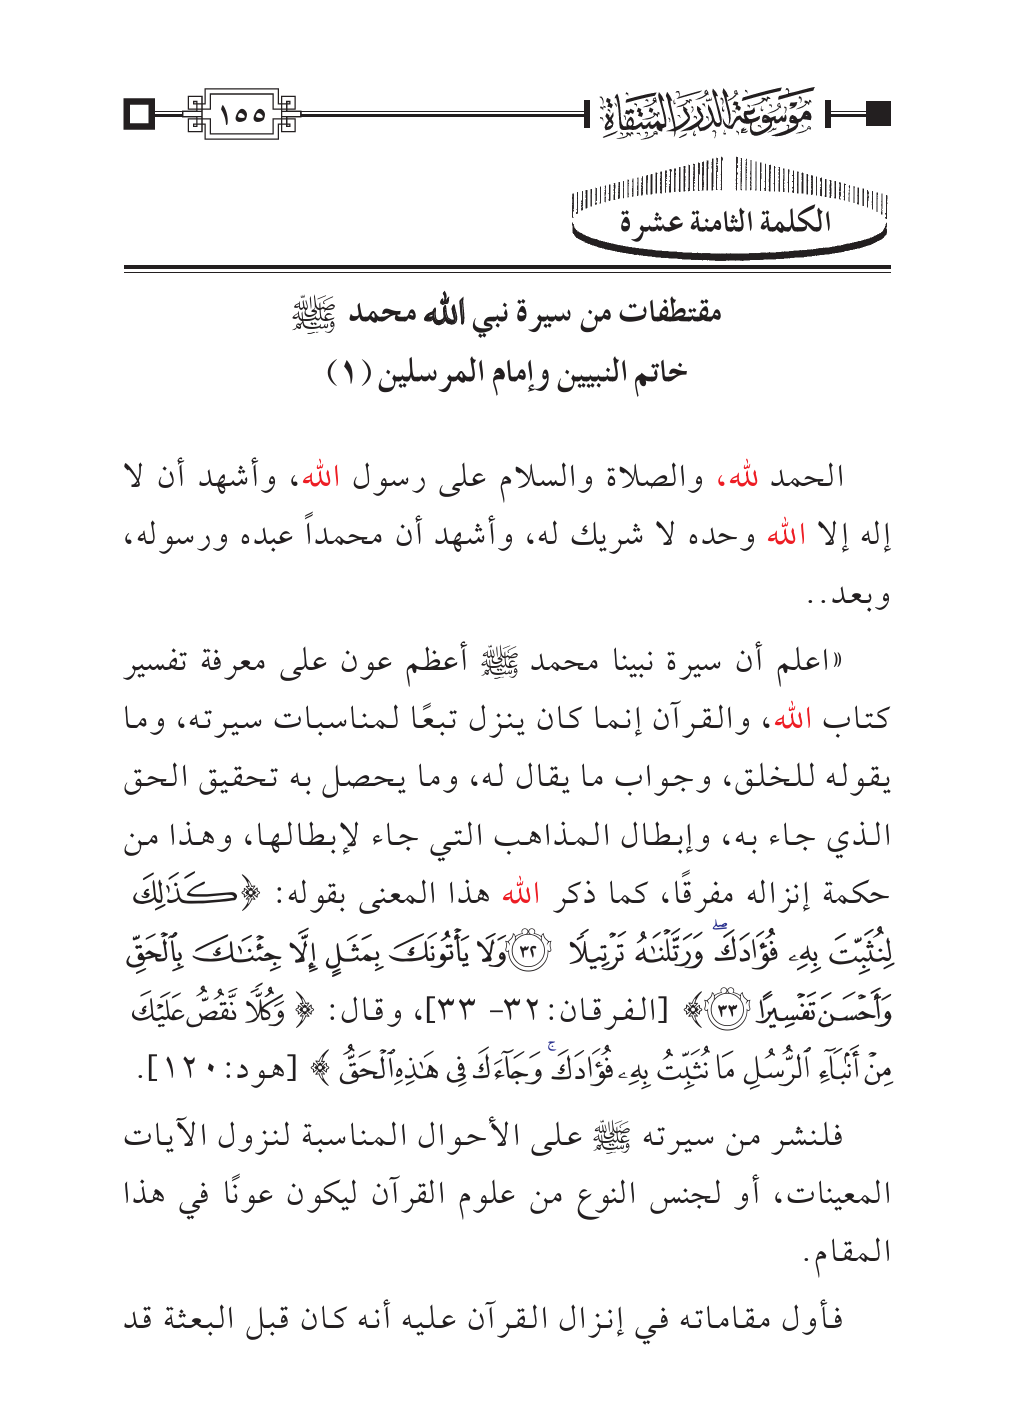 موسوعة الدرر المنتقاة
١٥٥
الكلمة الثامنة عشرة
مقتطفات من سيرة نبي الله محمد ﷺ
خاتم النبيين وإمام المرسلين (١)
الحمد لله، والصلاة والسلام على رسول الله، وأشهد أن لا
إله إلا الله وحده لا شريك له، وأشهد أن محمداً عبده ورسوله،
وبعد..
«اعلم أن سيرة نبينا محمد ﷺ أعظم عون على معرفة تفسير
كتاب الله، والقرآن إنما كان ينزل تبعًا لمناسبات سيرته، وما
يقوله للخلق، وجواب ما يقال له، وما يحصل به تحقيق الحق
الذي جاء به، وإبطال المذاهب التي جاء لإبطالها، وهذا من
حكمة إنزاله مفرقًا، كما ذكر الله هذا المعنى بقوله: ﴿كَذَٰلِكَ
لِنُثَبِّتَ بِهِۦ فُؤَادَكَ ۖ وَرَتَّلْنَٰهُ تَرْتِيلًا ٣٢ وَلَا يَأْتُونَكَ بِمَثَلٍ إِلَّا جِئْنَٰكَ بِٱلْحَقِّ
وَأَحْسَنَ تَفْسِيرًا ٣٣﴾ [الفرقان:٣٢- ٣٣]، وقال: ﴿وَكُلًّا نَّقُصُّ عَلَيْكَ
مِنْ أَنۢبَآءِ ٱلرُّسُلِ مَا نُثَبِّتُ بِهِۦ فُؤَادَكَ ۚ وَجَآءَكَ فِى هَٰذِهِ ٱلْحَقُّ﴾ [هود:١٢٠].
فلنشر من سيرته ﷺ على الأحوال المناسبة لنزول الآيات
المعينات، أو لجنس النوع من علوم القرآن ليكون عونًا في هذا
المقام.
فأول مقاماته في إنزال القرآن عليه أنه كان قبل البعثة قد